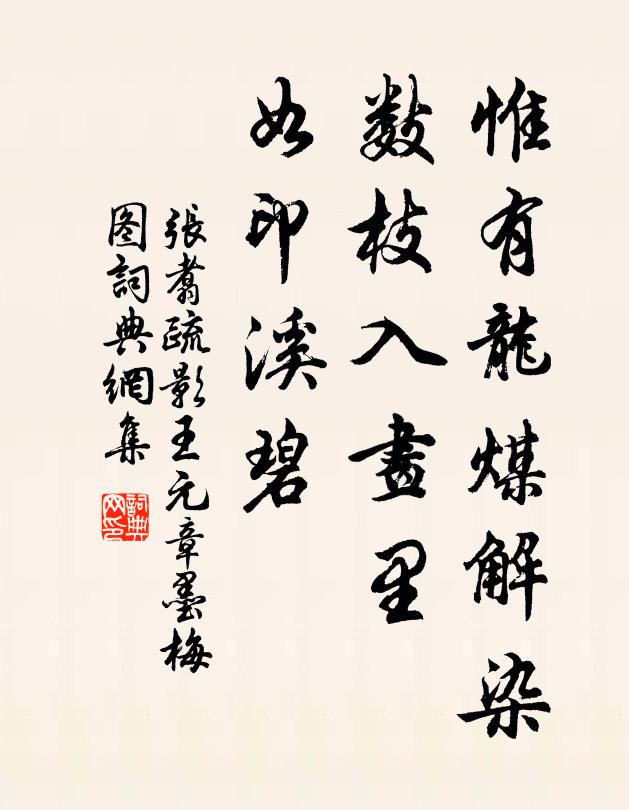 惟有龍煤解染
數枝入畫里
如印溪碧
張翥疏影王元章墨梅
图詞典網集
詞典网印